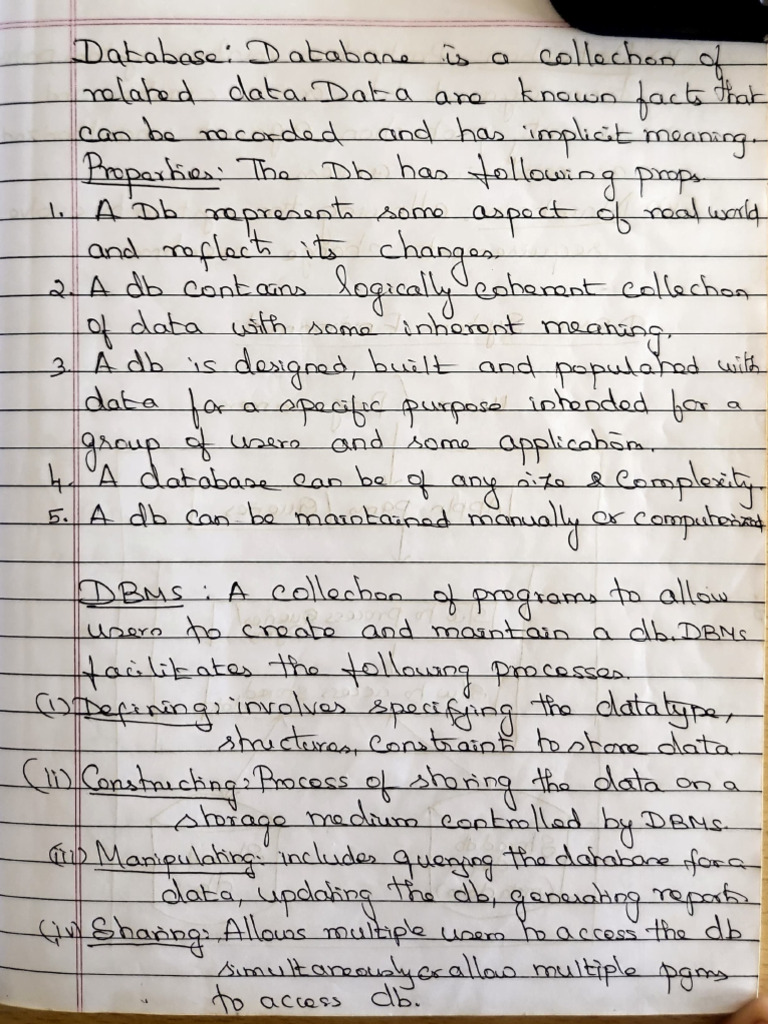 Database: Database is a collection of
related data. Data are known facts that
can be recorded and has implicit meaning.
Properties: The Db has following props
1. A Db represents some aspect of real world
and reflect its changes.
2. A db contains logically coherent collection
of data with some inherent meaning.
3. A db is designed, built and populated with
data for a specific purpose intended for a
group of users and some application.
4. A database can be of any size & Complexity.
5. A db can be maintained manually or computerized
DBMS: A collection of programs to allow
users to create and maintain a db. DBMS
facilitates the following processes.
(i) Defining: involves specifying the datatype,
structures, constraints to store data.
(ii) Constructing: Process of storing the data on a
storage medium controlled by DBMS.
(iii) Manipulating: includes querying the database for a
data, updating the db, generating reports.
(iv) Sharing: Allows multiple users to access the db
simultaneously or allow multiple pgms
to access db.